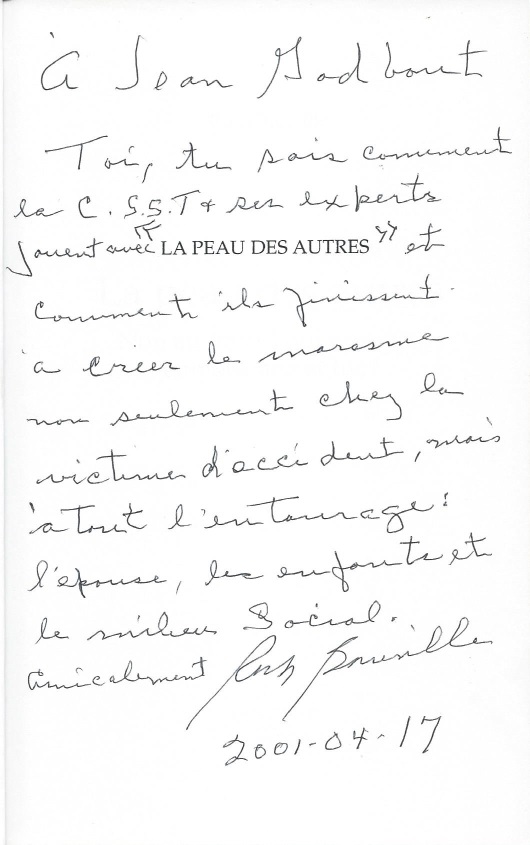 À Jean Godbout
Toi, tu sais comment
la C.S.S.T & ses experts
jouent avec " LA PEAU DES AUTRES " et
comment ils finissent
à créer le marasme
non seulement chez la
victime d'accident, mais
à tout l'entourage:
l'épouse, les enfants et
le milieu Social.
Amicalement
2001-04-17